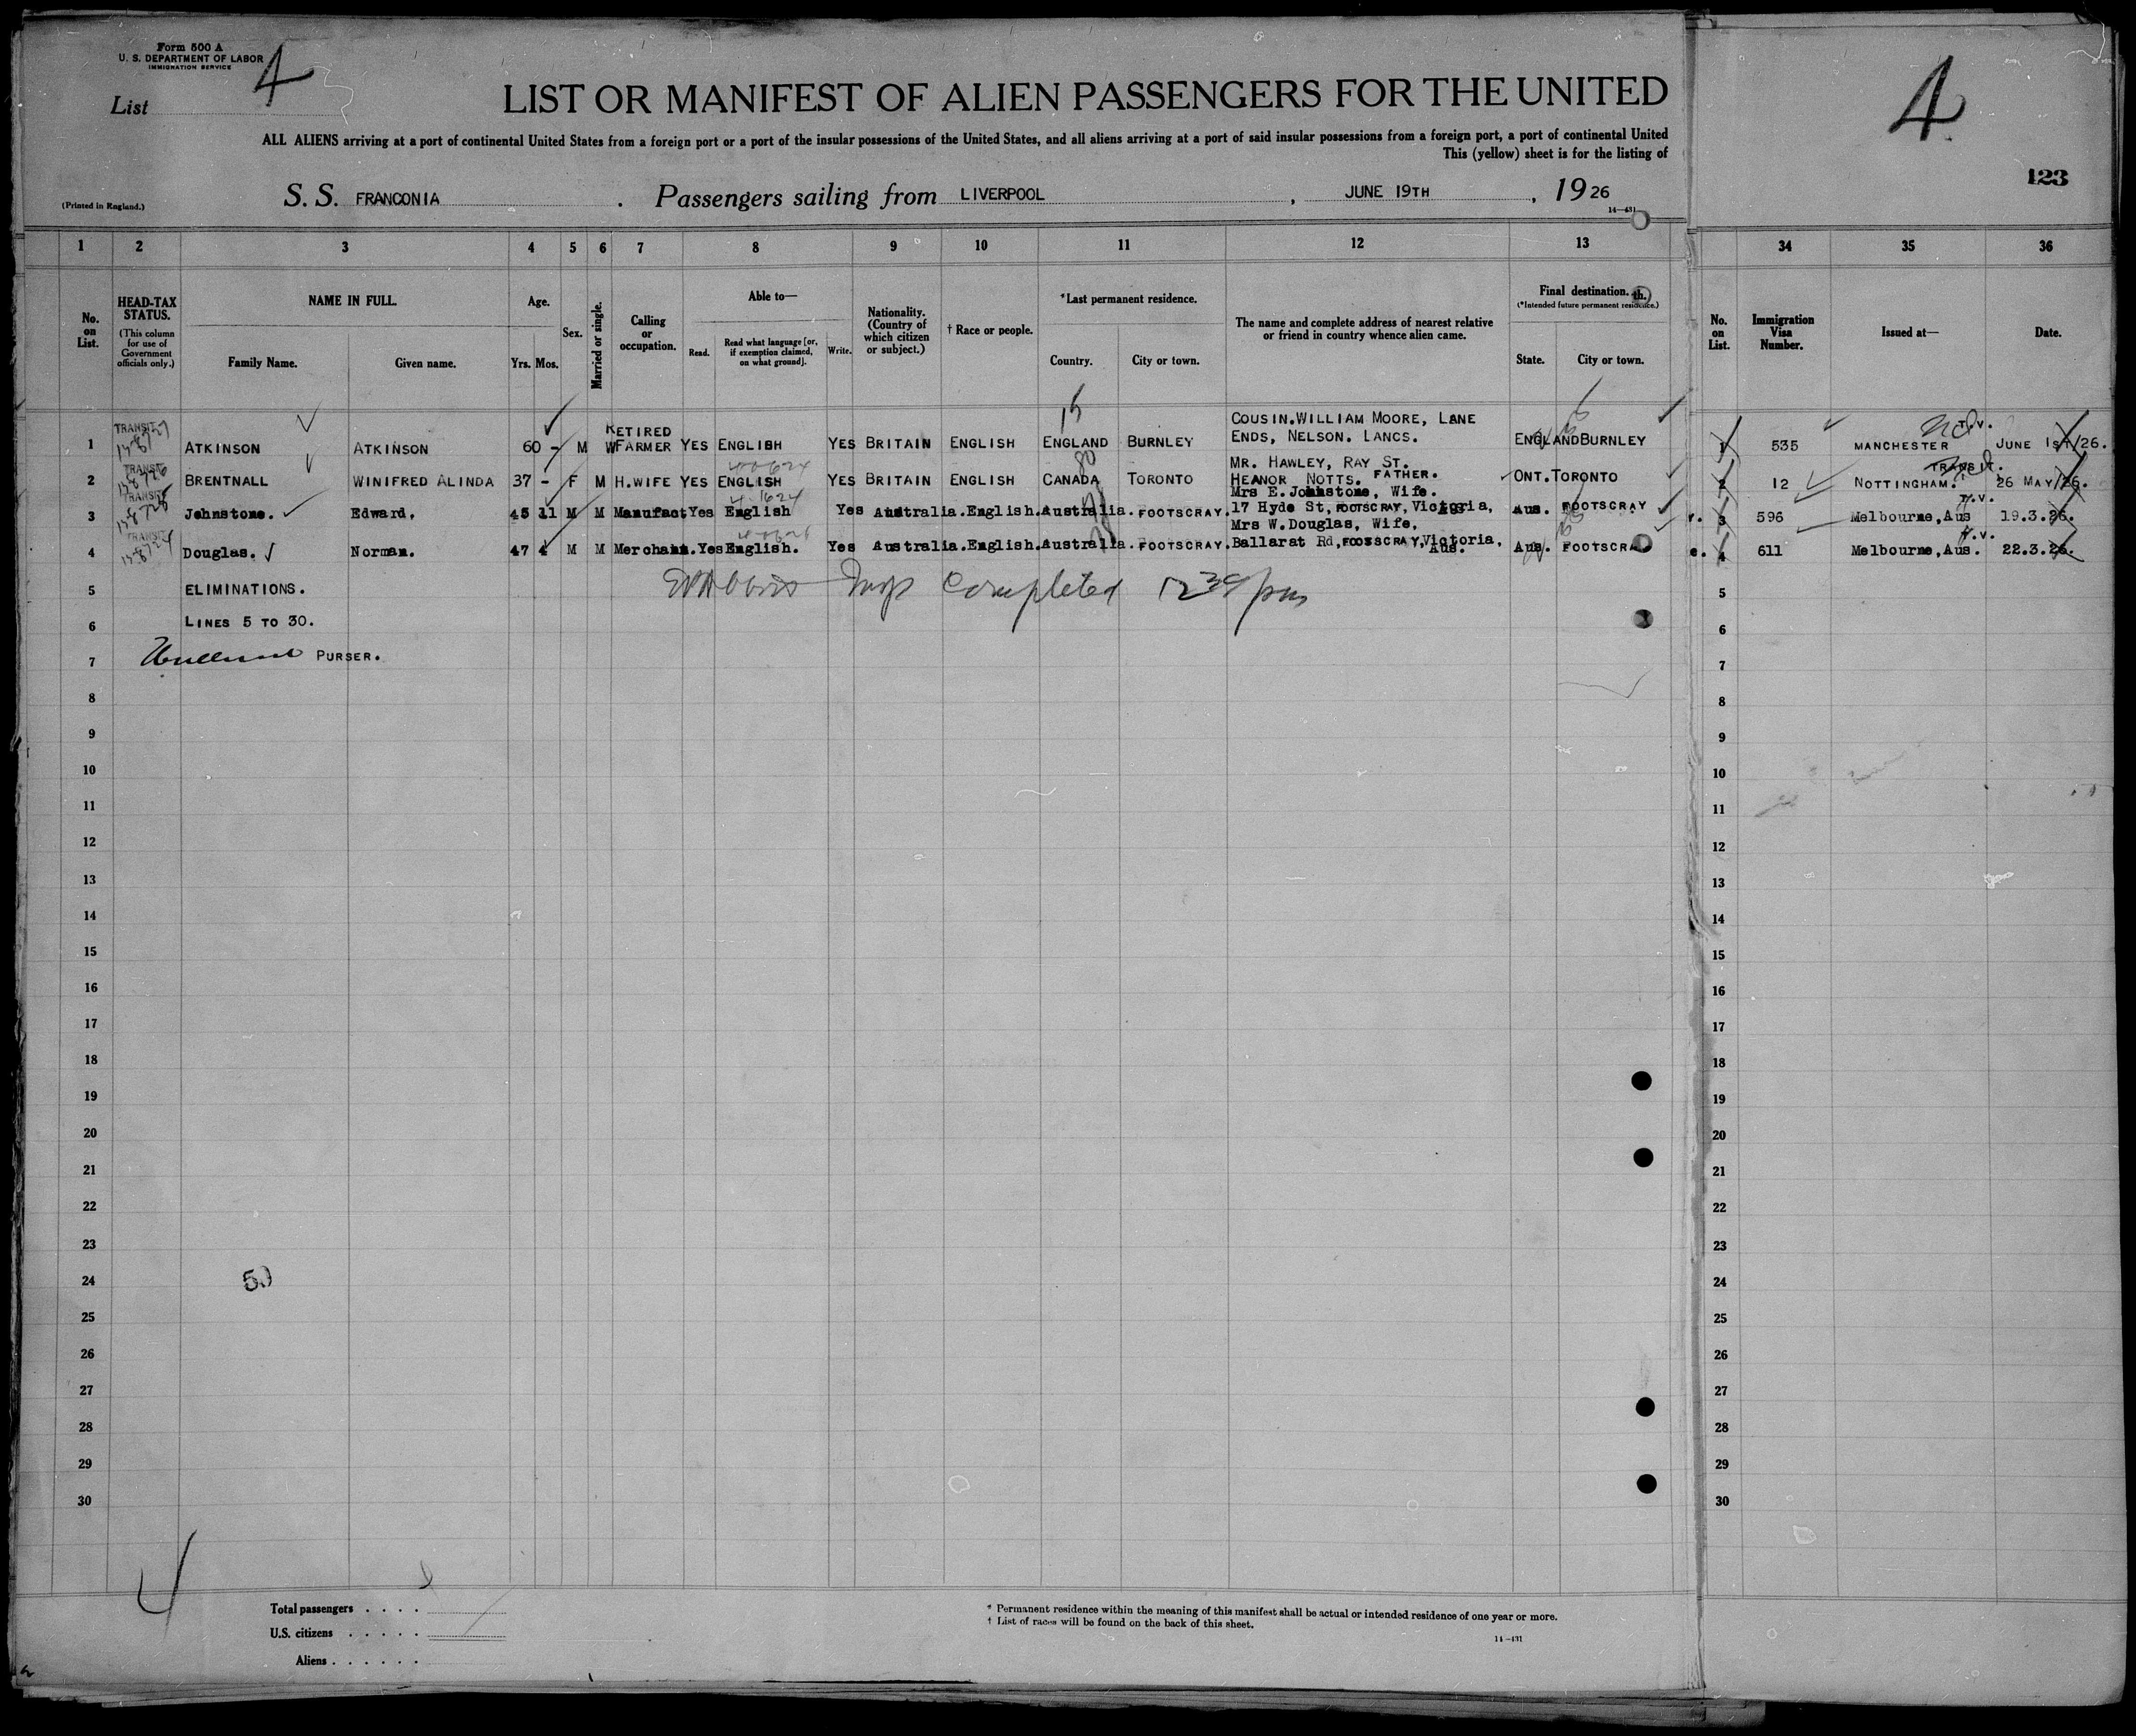 Form 500 A
U. S. DEPARTMENT OF LABOR
IMMIGRATION SERVICE
List 4
LIST OR MANIFEST OF ALIEN PASSENGERS FOR THE UNITED
ALL ALIENS arriving at a port of continental United States from a foreign port or a port of the insular possessions of the United States, and all aliens arriving at a port of said insular possessions from a foreign port, a port of continental United
This (yellow) sheet is for the listing of
(Printed in England.)
S. S. FRANCONIA . Passengers sailing from LIVERPOOL , JUNE 19TH , 1926
14-431
4
123
1 2 3 4 5 6 7 8 9 10 11 12 13 34 35 36
No. on List.
HEAD-TAX STATUS.
(This column for use of Government officials only.)
NAME IN FULL.
Family Name. Given name.
Age.
Yrs. Mos.
Sex.
Married or single.
Calling or occupation.
Able to—
Read. Read what language [or, if exemption claimed, on what ground]. Write.
Nationality. (Country of which citizen or subject.)
† Race or people.
*Last permanent residence.
Country. City or town.
The name and complete address of nearest relative or friend in country whence alien came.
Final destination.
(*Intended future permanent residence.)
State. City or town.
No. on List.
Immigration Visa Number.
Issued at—
Date.
1 TRANSIT ATKINSON ATKINSON 60 - M W RETIRED FARMER YES ENGLISH YES BRITAIN ENGLISH ENGLAND BURNLEY COUSIN.WILLIAM MOORE, LANE ENDS, NELSON. LANCS. ENGLAND BURNLEY 1 535 MANCHESTER T.V. JUNE 1ST/26.
2 TRANSIT BRENTNALL WINIFRED ALINDA 37 - F M H.WIFE YES ENGLISH YES BRITAIN ENGLISH CANADA TORONTO MR. HAWLEY, RAY ST. HEANOR NOTTS. FATHER. ONT. TORONTO 2 12 NOTTINGHAM. TRANSIT. 26 MAY/26.
3 TRANSIT Johnstone. Edward. 45 11 M M Manufact Yes English Yes Australia. English. Australia. FOOTSCRAY. Mrs E. Johnstone, Wife. 17 Hyde St, FOOTSCRAY, Victoria, Aus. FOOTSCRAY 3 596 Melbourne, Aus T.V. 19.3.26.
4 TRANSIT Douglas. Norman. 47 4 M M Merchant. Yes English. Yes Australia. English. Australia. FOOTSCRAY. Mrs W. Douglas, Wife, Ballarat Rd, FOOTSCRAY, Victoria, Aus. Aus. FOOTSCRAY 4 611 Melbourne, Aus. T.V. 22.3.26.
5 ELIMINATIONS. Insp Completed 12 30 pm 5
6 LINES 5 TO 30. 6
7 PURSER. 7
8 8
9 9
10 10
11 11
12 12
13 13
14 14
15 15
16 16
17 17
18 18
19 19
20 20
21 21
22 22
23 23
24 50 24
25 25
26 26
27 27
28 28
29 29
30 30
Total passengers . . . .
U.S. citizens . . . . .
Aliens . . . . . .
* Permanent residence within the meaning of this manifest shall be actual or intended residence of one year or more.
† List of races will be found on the back of this sheet.
14-431